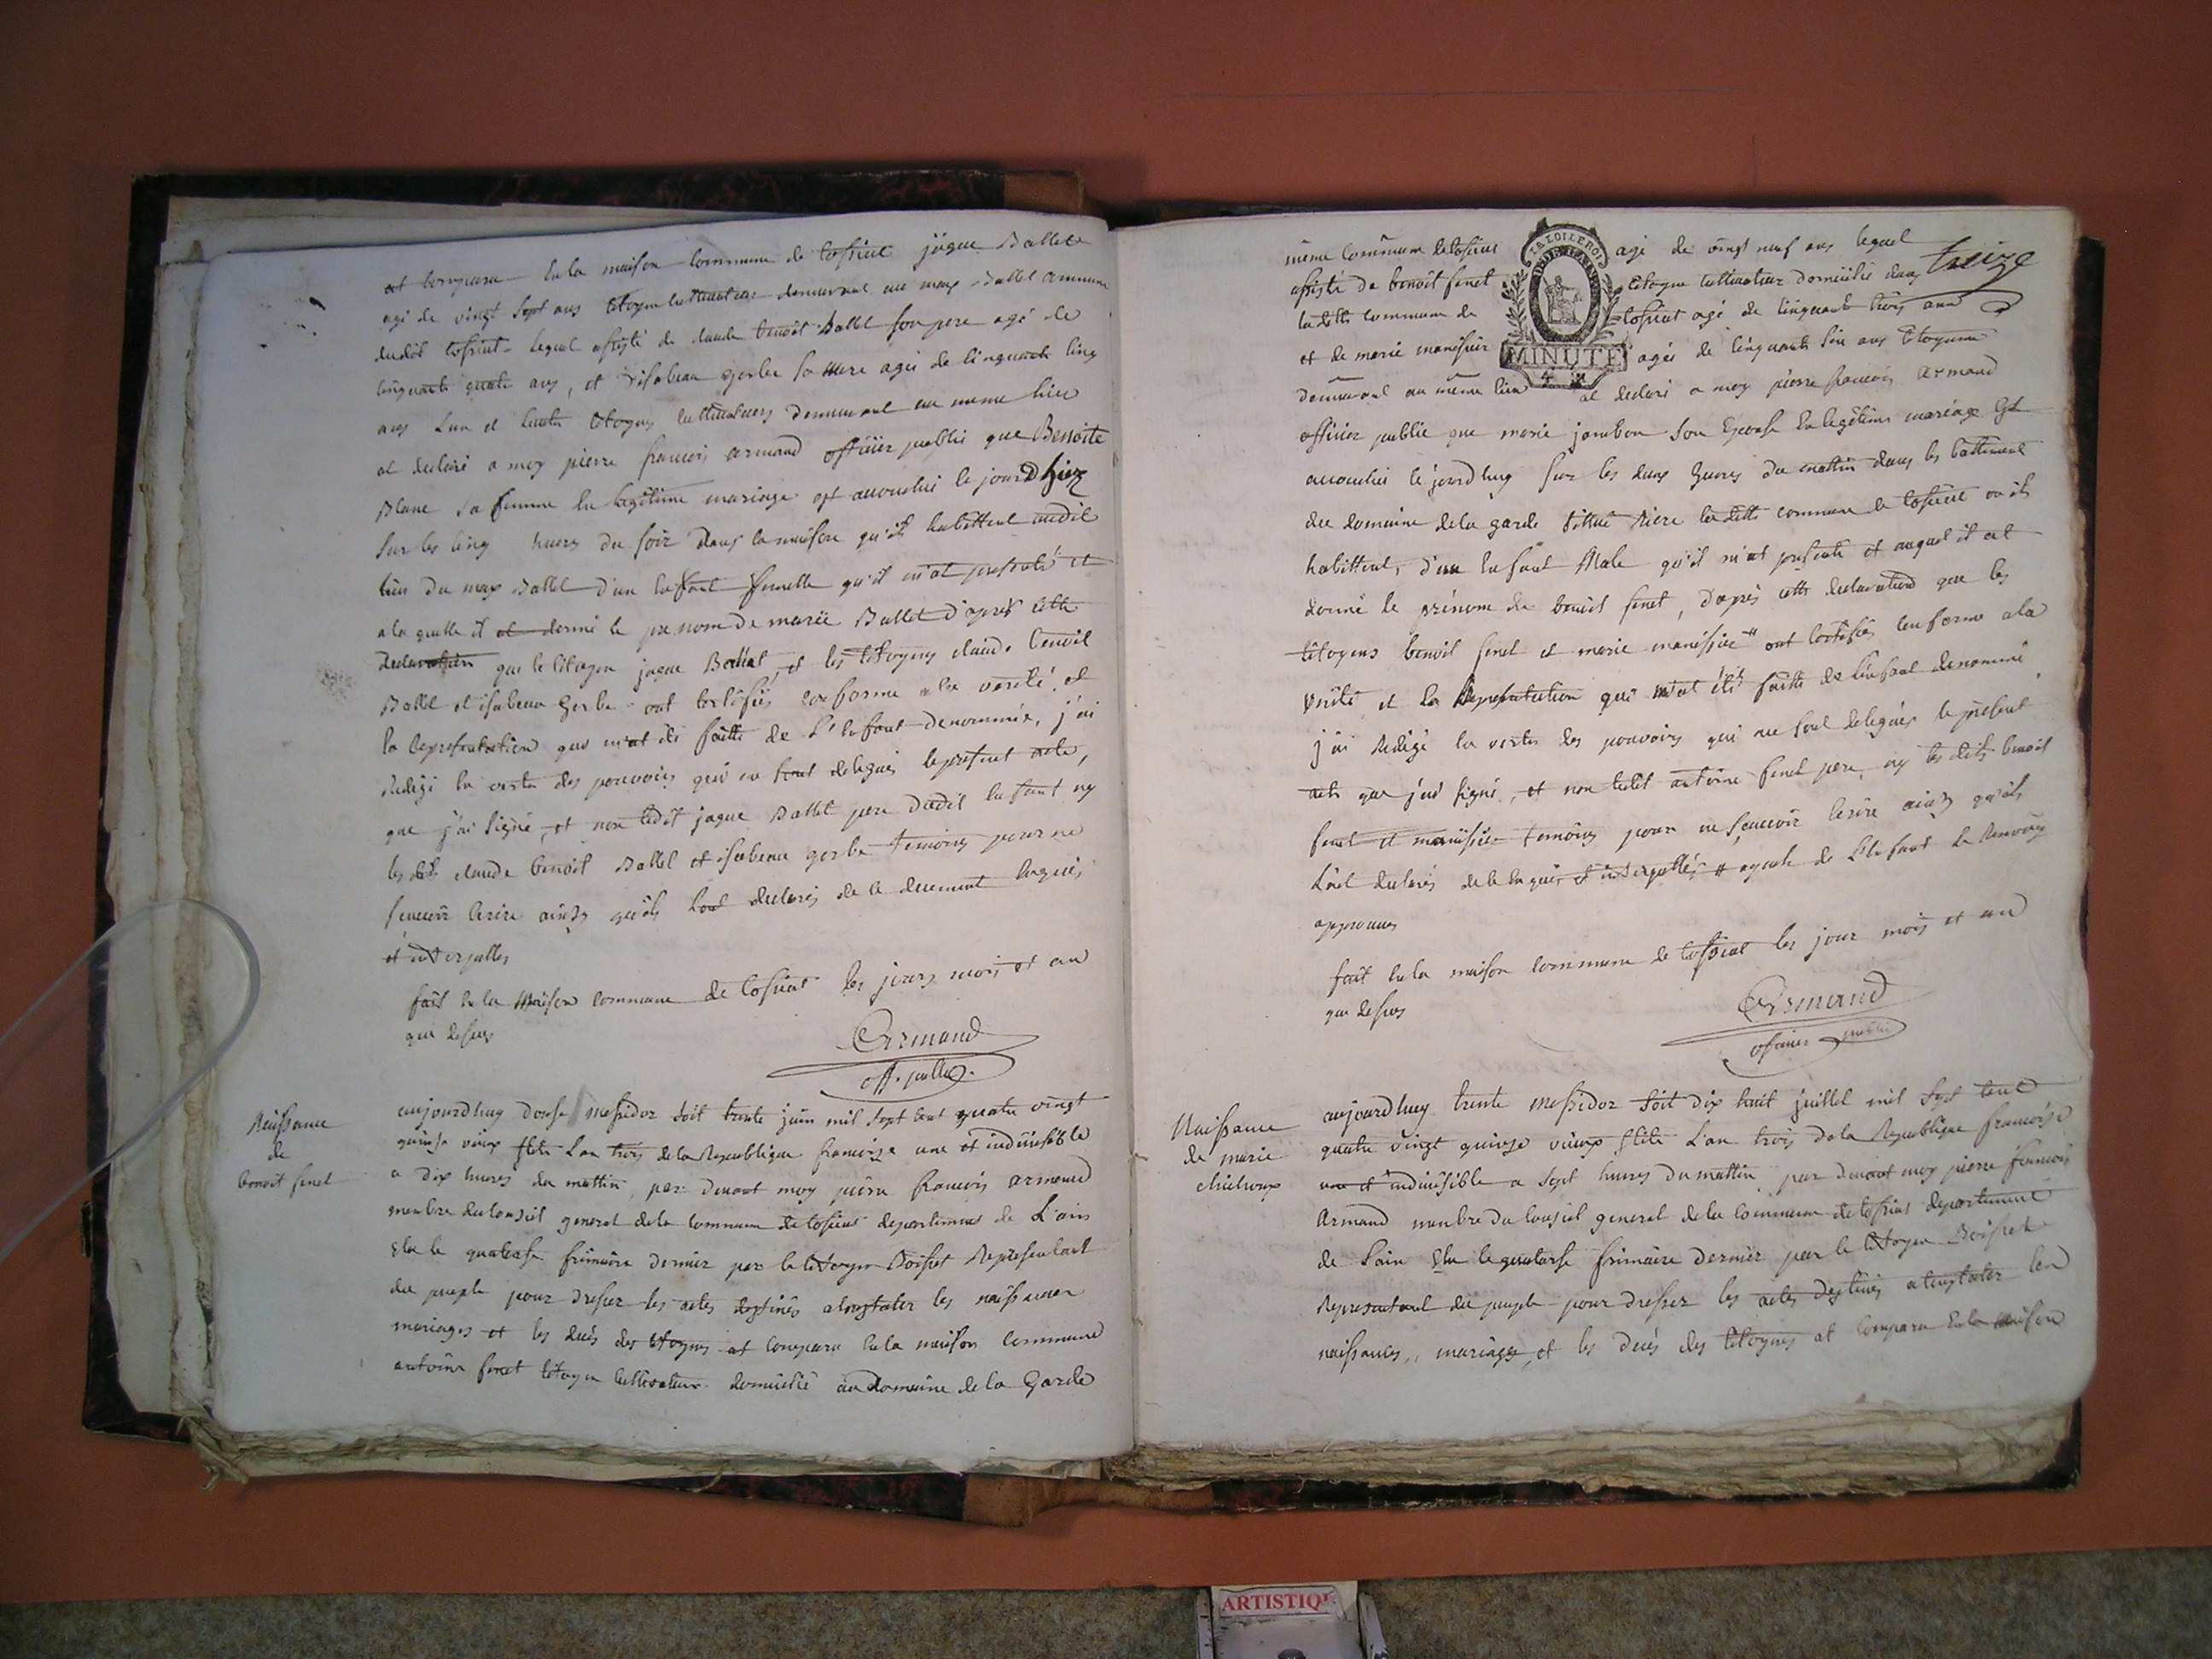 at comparu en la maison commune de tossiat jâque Ballet
agé de vingt sept ans citoyen cultivateur demeurant au max Ballet commune
dudit tossiat lequel assisté de claude benoit Ballet son pere agé de
cinquante quatre ans, et d'isabeau gerbe sa mere agée de cinquante cinq
ans l'un et l'autre citoyens cultivateurs demeurant au meme lieu
at declaré a moy pierre francois armand officier public que Benoite
Blanc sa femme en legitime mariage est accouchée le jourd hier
sur les cinq heures du soir dans la maison qu'ils habittent audit
lieu du max Ballet d'un enfant femelle qu'il m'at presenté et
a la quelle il at donné le prenom de marie Ballet d'apres cette
declaration que le citoyen jaque Ballet, et les citoyens claude benoit
Ballet et isabeau Gerbe ont certifiés conforme a la verité et
la representation que m'at été faitte de l'enfant denommée, j'ai
redigé en vertu des pouvoirs qui me sont delegués le present acte,
que j'ai signé, et non ledit jaque Ballet pere dudit enfant ny
les dits claude benoit Ballet et isabeau gerbe temoins pour ne
scavoir ecrire ainsy qu'ils l'ont declarés de ce duement enquis
et interpellés
fait en la maison commune de tossiat les jours mois et an
que dessus
Armand
off. public.
Naissance
de
benoit fenet
aujourdhuy douse messidor soit trente juin mil sept cent quatre vingt
quinse vieux stile l'an trois de la republique francoise une et indivisible
a dix heures du mattin, par devant moy pierre francois armand
membre du conseil general de la commune de tossiat departement de L'ain
elu le quatorse frimaire dernier par le citoyen Boisset representant
du peuple pour dresser les actes destinés a constater les naissances
mariages et les decés des citoyens at comparu en la maison commune
antoine fenet citoyen cultivateur domicilié au domaine de la Garde
même commune de tossiat agé de vingt neuf ans lequel
treize
assisté de benoit fenet citoyen cultivateur domicilié dans
ladite commune de tossiat agé de cinquante trois ans
et de marie manissier agée de cinquante six ans citoyenne
LA LOI LE ROI
MINUTE
demeurant au même lieu at declaré a moy pierre francois armand
officier public que marie jambon son epouse en legitime mariage est
accouchée le jourdhuy sur les deux heures du mattin dans les battiment
du domaine de la garde situé riere ladite commune de tossiat ou ils
habittent, d'un enfant Male qu'il m'at presenté et auquel il at
donné le prénom de benoit fenet, d'apres cette declaration que les
citoyens benoit fenet et marie manissier ont certifiés conforme a la
verité et la representation qui m'at été faitte de l'enfant denommé
j'ai redigé en vertu des pouvoirs qui me sont delegués le present
acte que j'ai signé, et non ledit antoine fenet pere, ny les dits benoit
fenet et manissier temoins pour ne scavoir ecrire ainsy qu'ils
l'ont declarés de ce enquis et interpellés # ayeule de l'enfant le renvoy
approuvé
fait en la maison commune de tossiat les jour mois et an
que dessus
Armand
officier public
Naissance
de marie
chichoux
aujourdhuy trente messidor soit dix huit juillet mil sept cent
quatre vingt quinze vieux stile l'an trois de la republique francoise
une et indivisible a sept heures du mattin par devant moy pierre francois
Armand membre du conseil general de la commune de tossiat departement
de l'ain elu le quatorse frimaire dernier par le citoyen Boisset
representant du peuple pour dresser les actes destinés a constater les
naissances, mariages, et les decés des citoyens at comparu en la maison
ARTISTIQ